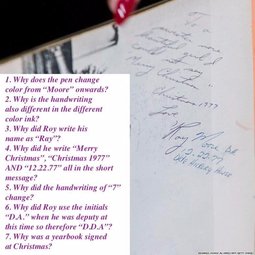 To a
sweeter more
beautiful girl
I could not say
"Merry Christmas"
Christmas 1977
Love,
Roy Moore D.A.
12-22-77
Olde Hickory House
1. Why does the pen change
color from “Moore” onwards?
2. Why is the handwriting
also different in the different
color ink?
3. Why did Roy write his
name as “Ray”?
4. Why did he write “Merry
Christmas”, “Christmas 1977”
AND “12.22.77” all in the short
message?
5. Why did the handwring of “7”
change?
6. Why did Roy use the initials
“D.A.” when he was deputy at
this time so therefore “D.D.A”?
7. Why was a yearbook signed
at Christmas?